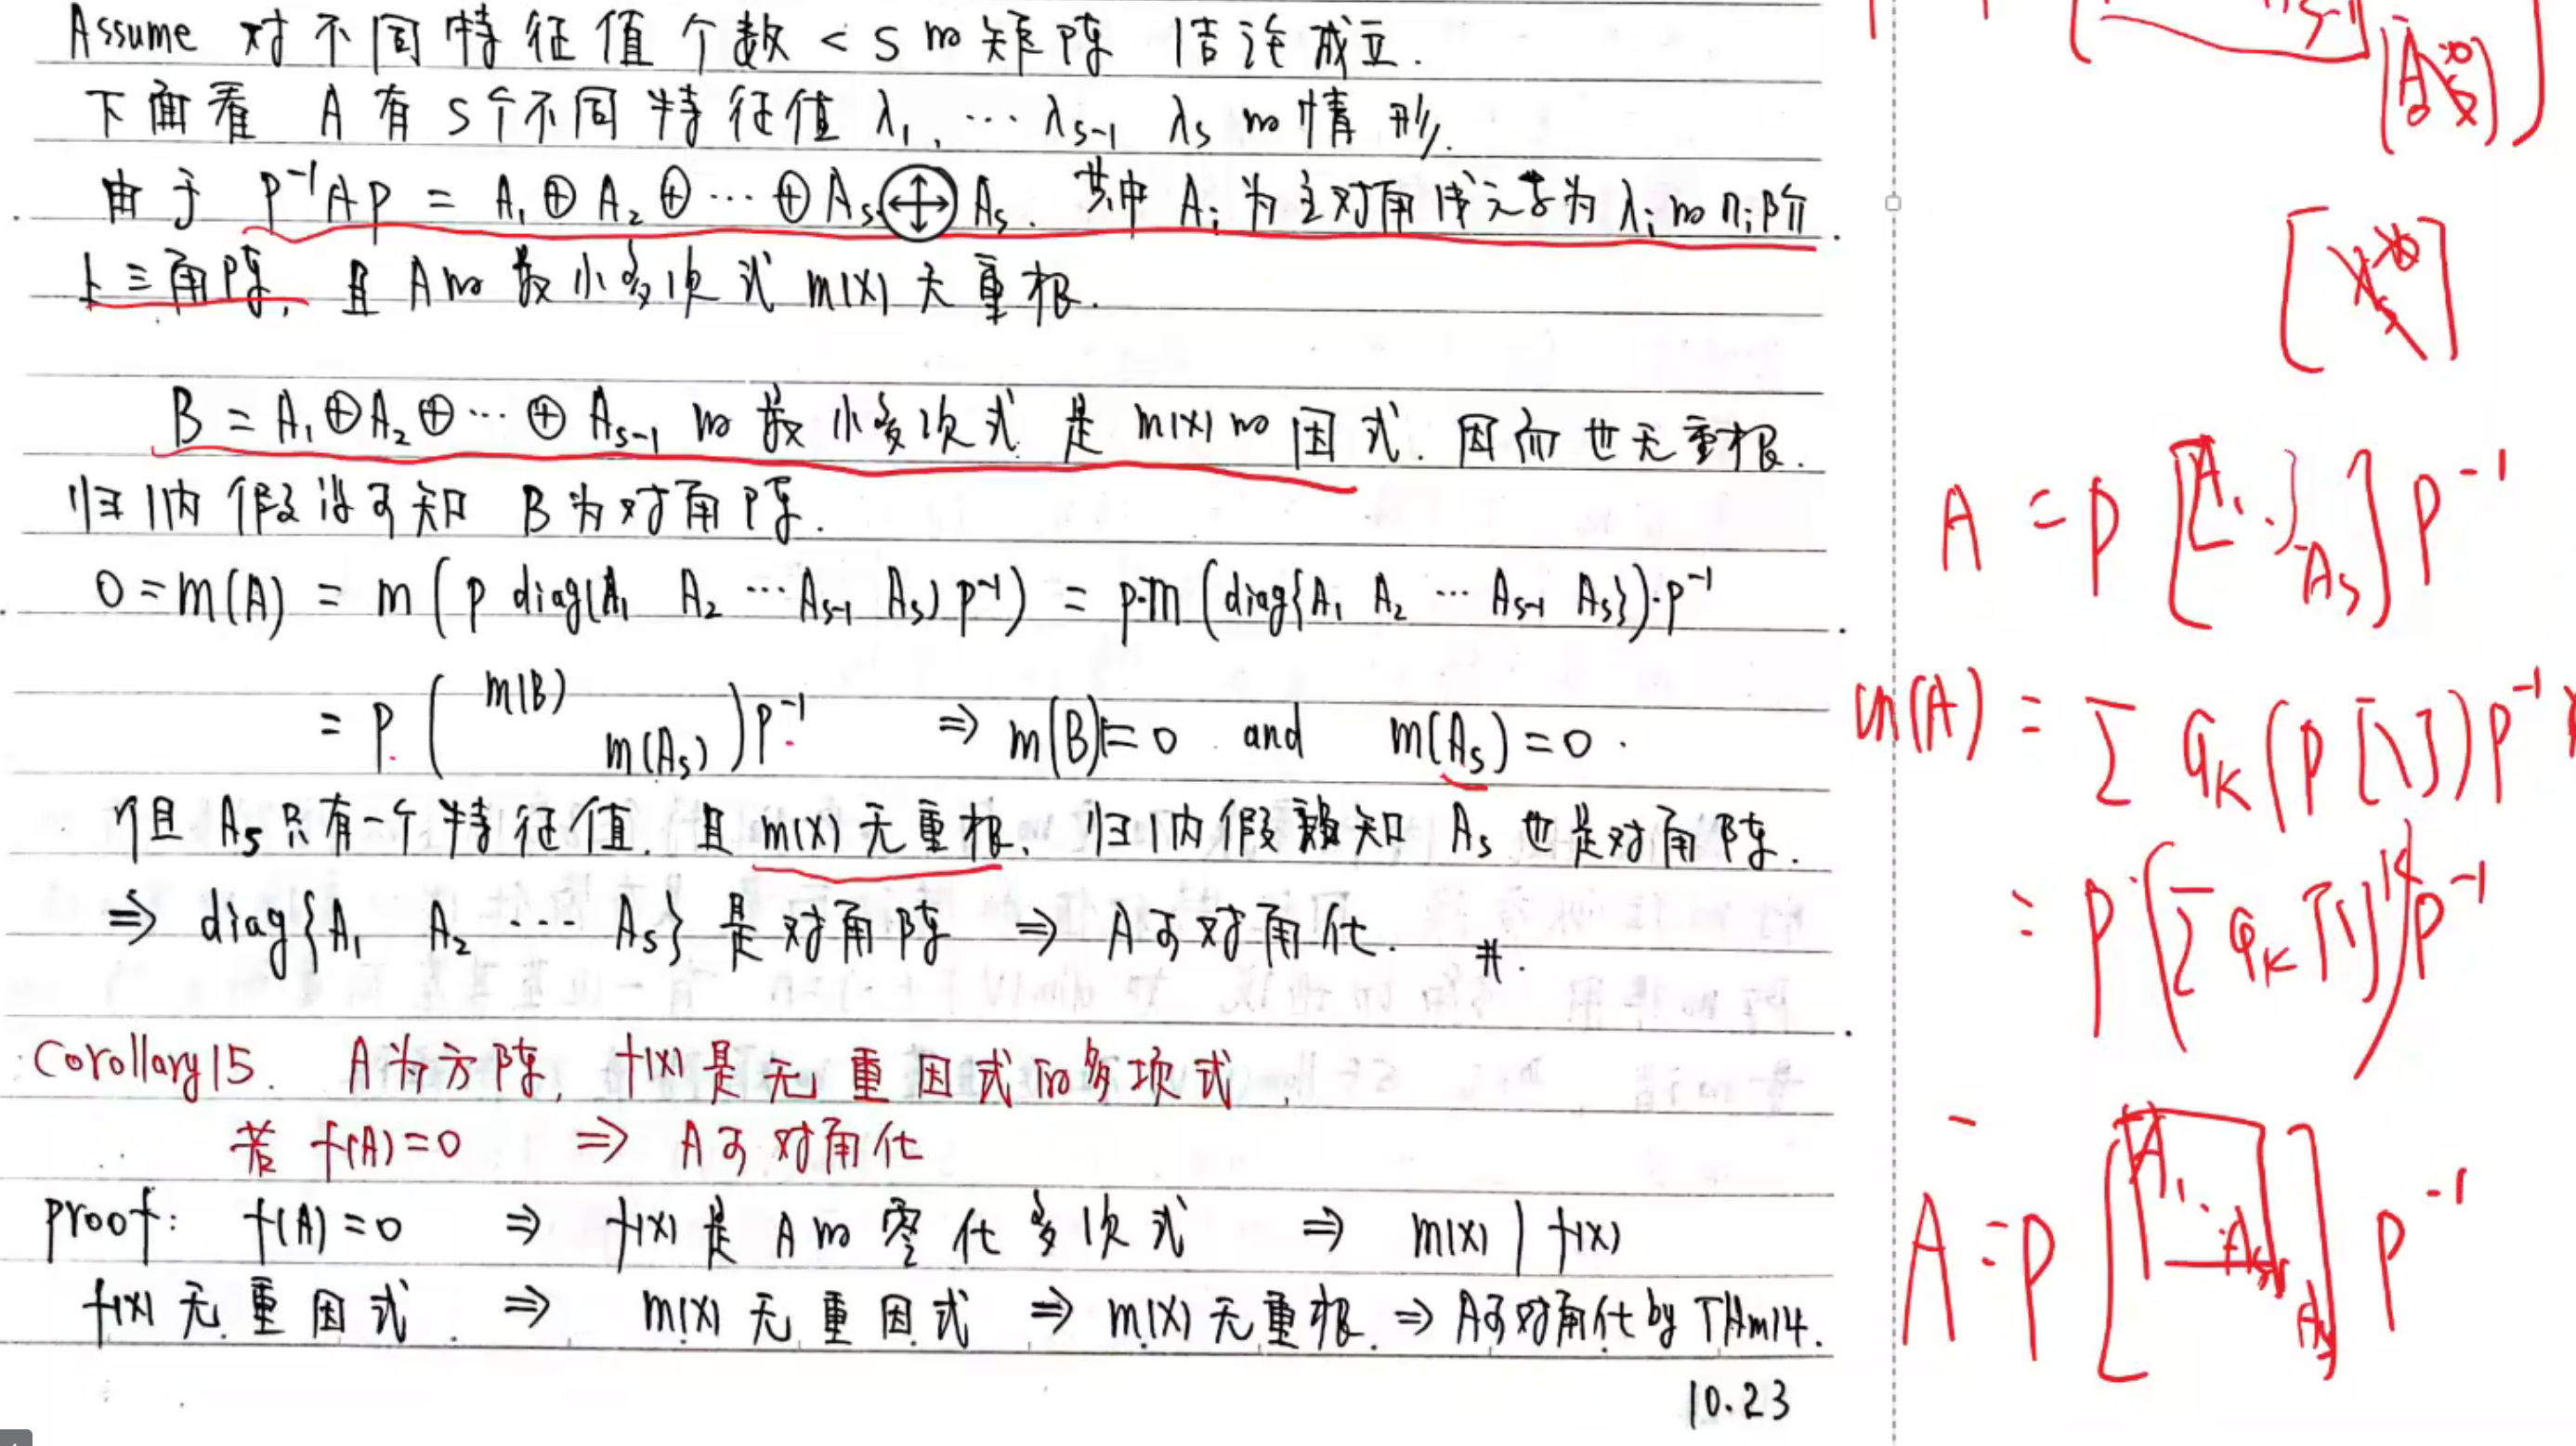 Assume 对不同特征值个数 < s 的矩阵 结论成立.
下面看 A 有 s个不同特征值 λ₁, ⋯ λₛ₋₁ λₛ 的情形.
由于 P⁻¹AP = A₁ ⊕ A₂ ⊕ ⋯ ⊕ Aₛ ⊕ Aₛ. 其中 Aᵢ 为主对角线元素为 λᵢ 的 nᵢ阶
上三角阵, 且 A的最小多项式 m(x) 无重根.
B = A₁ ⊕ A₂ ⊕ ⋯ ⊕ Aₛ₋₁ 的最小多项式 是 m(x) 的 因式. 因而也无重根.
归纳假设可知 B为对角阵.
0 = m(A) = m(P diag(A₁ A₂ ⋯ Aₛ₋₁ Aₛ) P⁻¹) = P·m(diag{A₁ A₂ ⋯ Aₛ₋₁ Aₛ})·P⁻¹
= P. ( m(B)
m(Aₛ) ) P⁻¹ ⇒ m(B) = 0 and m(Aₛ) = 0.
但且 Aₛ只有一个特征值. 且 m(x) 无重根. 归纳假设知 Aₛ 也是对角阵.
⇒ diag{A₁ A₂ ⋯ Aₛ} 是对角阵 ⇒ A可对角化. #.
Corollary 15. A为方阵, f(x)是无重因式的多项式.
若 f(A)=0 ⇒ A可对角化
proof: f(A)=0 ⇒ f(x)是 A的 零化多项式 ⇒ m(x) | f(x)
f(x) 无重因式. ⇒ m(x) 无重因式 ⇒ m(x)无重根. ⇒ A可对角化 by Thm14.
10.23
A = P [A₁ ⋱ Aₛ] P⁻¹
m(A) = Σ aₖ (P [\] P⁻¹)
= P (Σ aₖ [\]ᵏ) P⁻¹
A = P [A₁ ⋱ Aₛ₋₁ Aₛ] P⁻¹